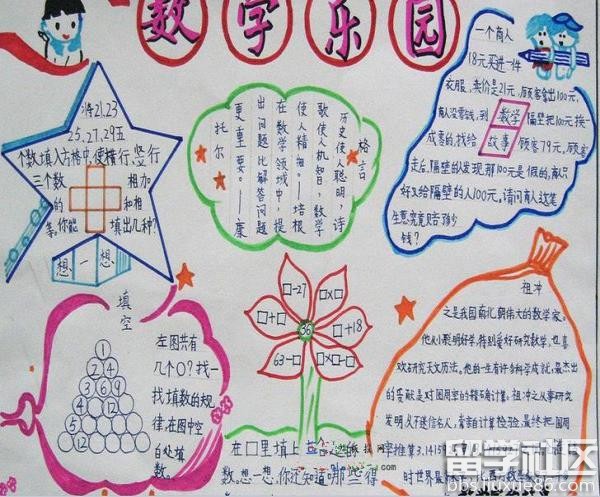 数学乐园
将21.23
25.27.29五
个数填入方格中,使横行、竖行
三个数 相加
的和相
等。你能 填出几种?
想一想
格言
历史使人聪明,诗
歌使人机智,数学
使人精细。——培根
在数学领域中,提
出问题比解答问题
更重要。——康
托尔
一个商人
18元买进一件
衣服,卖价是21元,顾客拿出100元,
商人没零钱,到 隔壁把100元换
数学故事
成零的,找给 顾客79元,顾客
走后,隔壁的人发现,那100元是假的,商人只
好又给隔壁的人100元。请问商人这笔
生意究竟赔了多少
钱?
填空
1
2 4
3 6 9
4 12
5 12
左图共有
几个○?找一
找填数的规
律,在图中空
白处填
数。
□-27
□×□
□+□
36
□+18
63-□
□×□-□
在□里填上
数,想一想,你还知道哪些得
祖冲
之是我国南北朝伟大的数学家。
他从小聪明好学,特别爱好研究数学,也喜
欢研究天文历法。他的一生有许多科学成就,最杰出
的贡献是对圆周率的精确计算。祖冲之从事研究
发明
时世界最
留学社区
bbs.liuxue86.com